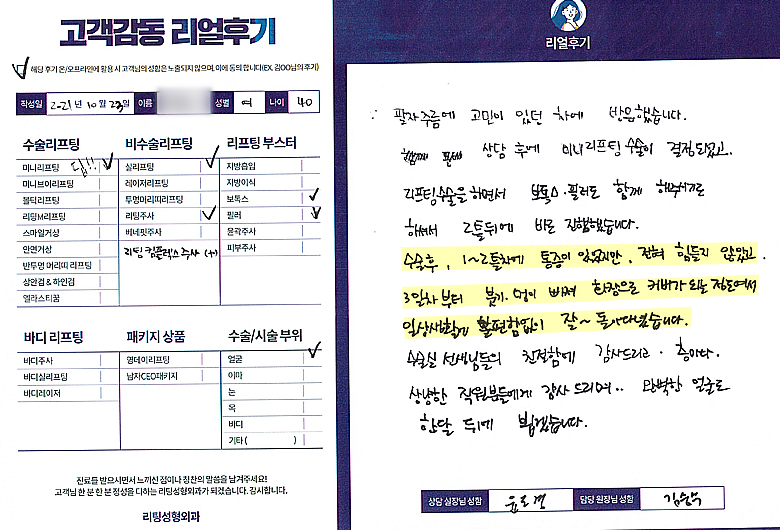 고객감동 리얼후기
해당 후기 온/오프라인에 활용 시 고객님의 성함은 노출되지 않으며, 이에 동의 합니다(EX. 김OO님의 후기)
작성일 2021년 10월 23일 이름 성별 여 나이 40
수술리프팅
미니리프팅 딥!!!
미니브이리프팅
볼티리프팅
리팅M리프팅
스마일거상
안면거상
반투명 머리띠 리프팅
상안검 & 하안검
엘라스티꿈
비수술리프팅
실리프팅
레이저리프팅
투명머리띠리프팅
리팅주사
버네핏주사
리팅 컴플렉스 주사 (+)
리프팅 부스터
지방흡입
지방이식
보톡스
필러
윤곽주사
피부주사
바디 리프팅
바디주사
바디실리프팅
바디레이저
패키지 상품
영데이리프팅
남자CEO패키지
수술/시술 부위
얼굴
이마
눈
목
바디
기타 ( )
진료를 받으시면서 느끼신 점이나 칭찬의 말씀을 남겨주세요!
고객님 한 분 한 분 정성을 다하는 리팅성형외과가 되겠습니다. 감사합니다.
리팅성형외과
리얼후기
팔자주름에 고민이 있던 차에 방문했습니다.
상담 후에 미니리프팅 수술이 결정되었고.
리프팅수술을 하면서 보톡스·필러도 함께 해주기로
하셔서 2틀뒤에 바로 진행했습니다.
수술후, 1~2틀차에 통증이 있었지만, 전혀 힘들지 않았고.
3일차부터 붓기·멍이 빠져 화장으로 커버가 되는 정도여서
일상생활에 불편함없이 잘~ 돌아다녔습니다.
수술실 선생님들의 친절함에 감사드리고.
상냥한 직원분들에게 감사 드리며.. 완벽한 얼굴로
한달 뒤에 뵙겠습니다.
상담 실장님 성함 담당 원장님 성함